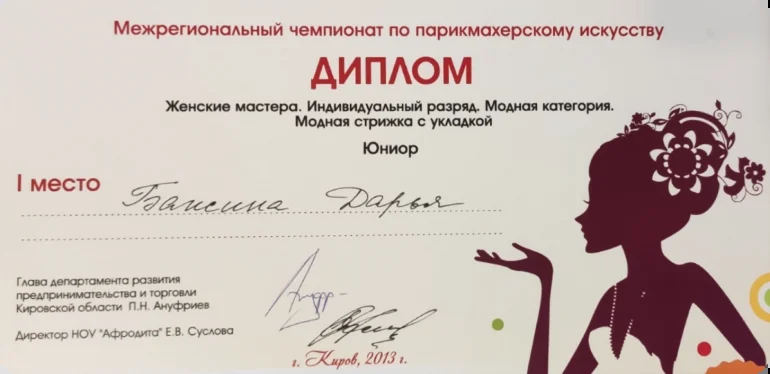 Межрегиональный чемпионат по парикмахерскому искусству
ДИПЛОМ
Женские мастера. Индивидуальный разряд. Модная категория.
Модная стрижка с укладкой
Юниор
I место Баксина Дарья
Глава департамента развития
предпринимательства и торговли
Кировской области П.Н. Ануфриев
Директор НОУ "Афродита" Е.В. Суслова
г. Киров, 2013 г.